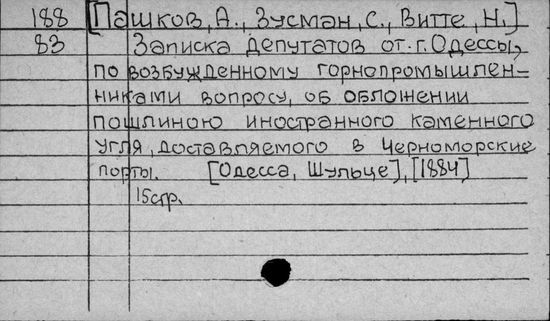 188 [Пашков, А., Зусман, С., Витте, Н.]
83 Записка депутатов от г. Одессы,
по возбужденному горнопромышлен-
никами вопросу, об обложении
пошлиною иностранного каменного
угля, доставляемого в Черноморские
порты. [Одесса, Шульце], [1884]
15 стр.